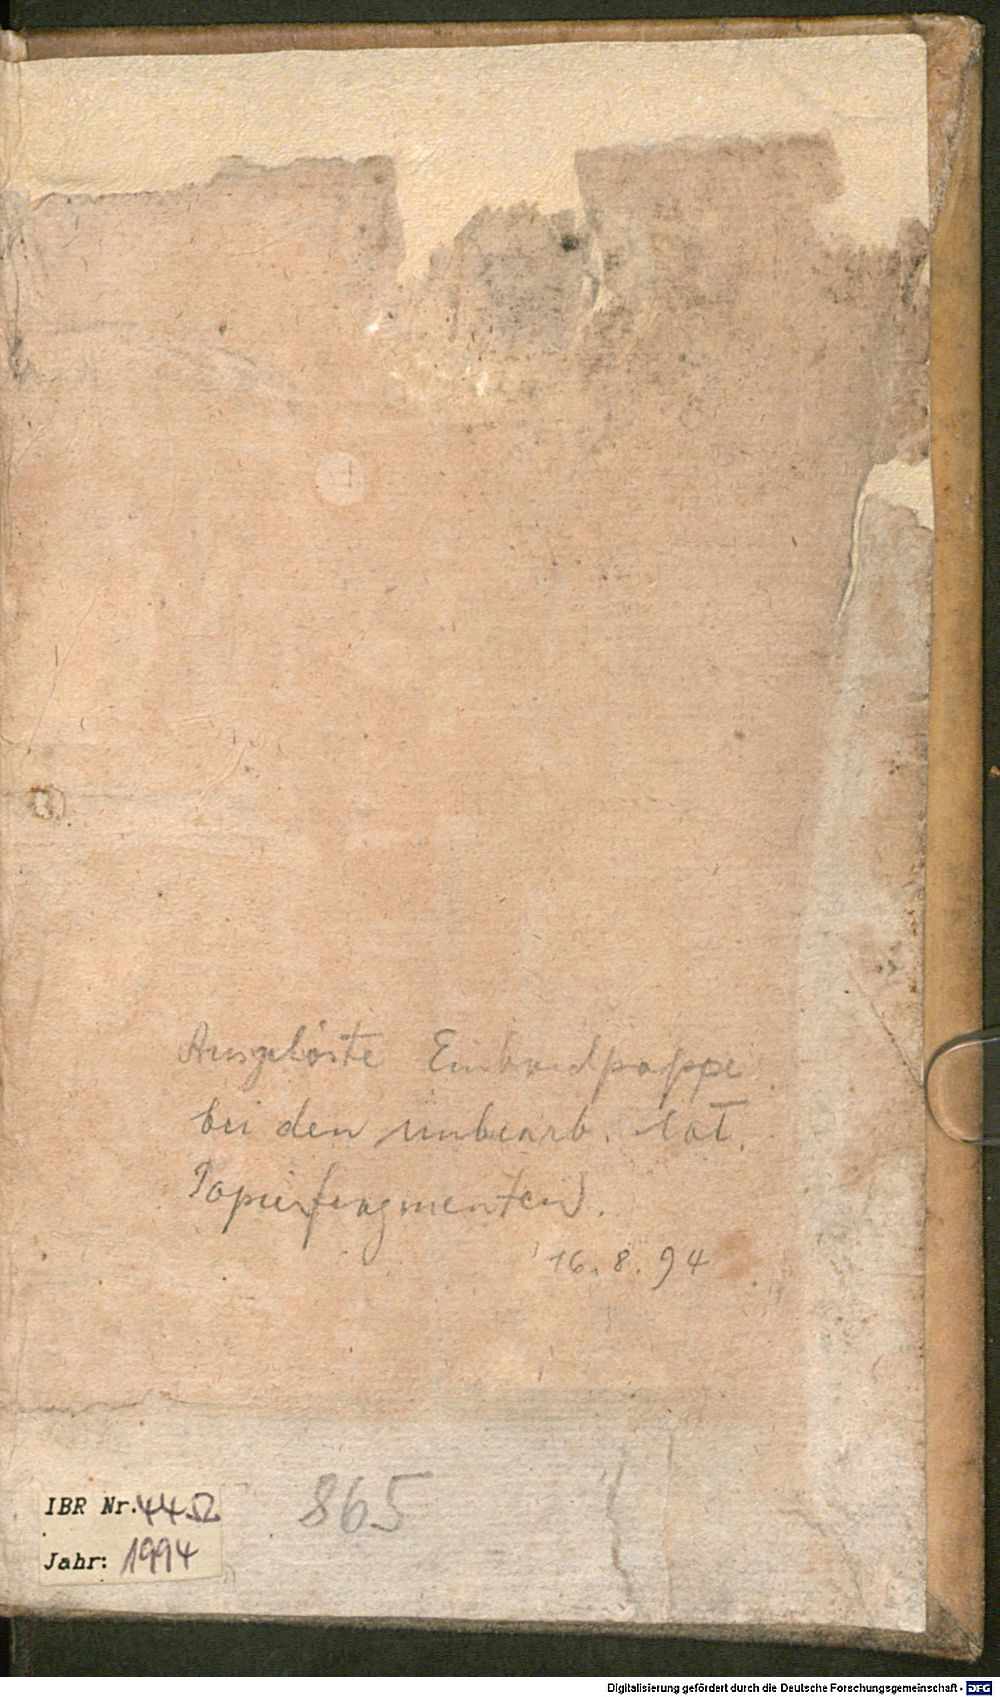 Ausgelöste Einbandpappe
bei den unbearb. lat.
Papierfragmenten.
16. 8. 94
865
IBR Nr.
Jahr: 1994
Digitalisierung gefördert durch die Deutsche Forschungsgemeinschaft - DFG